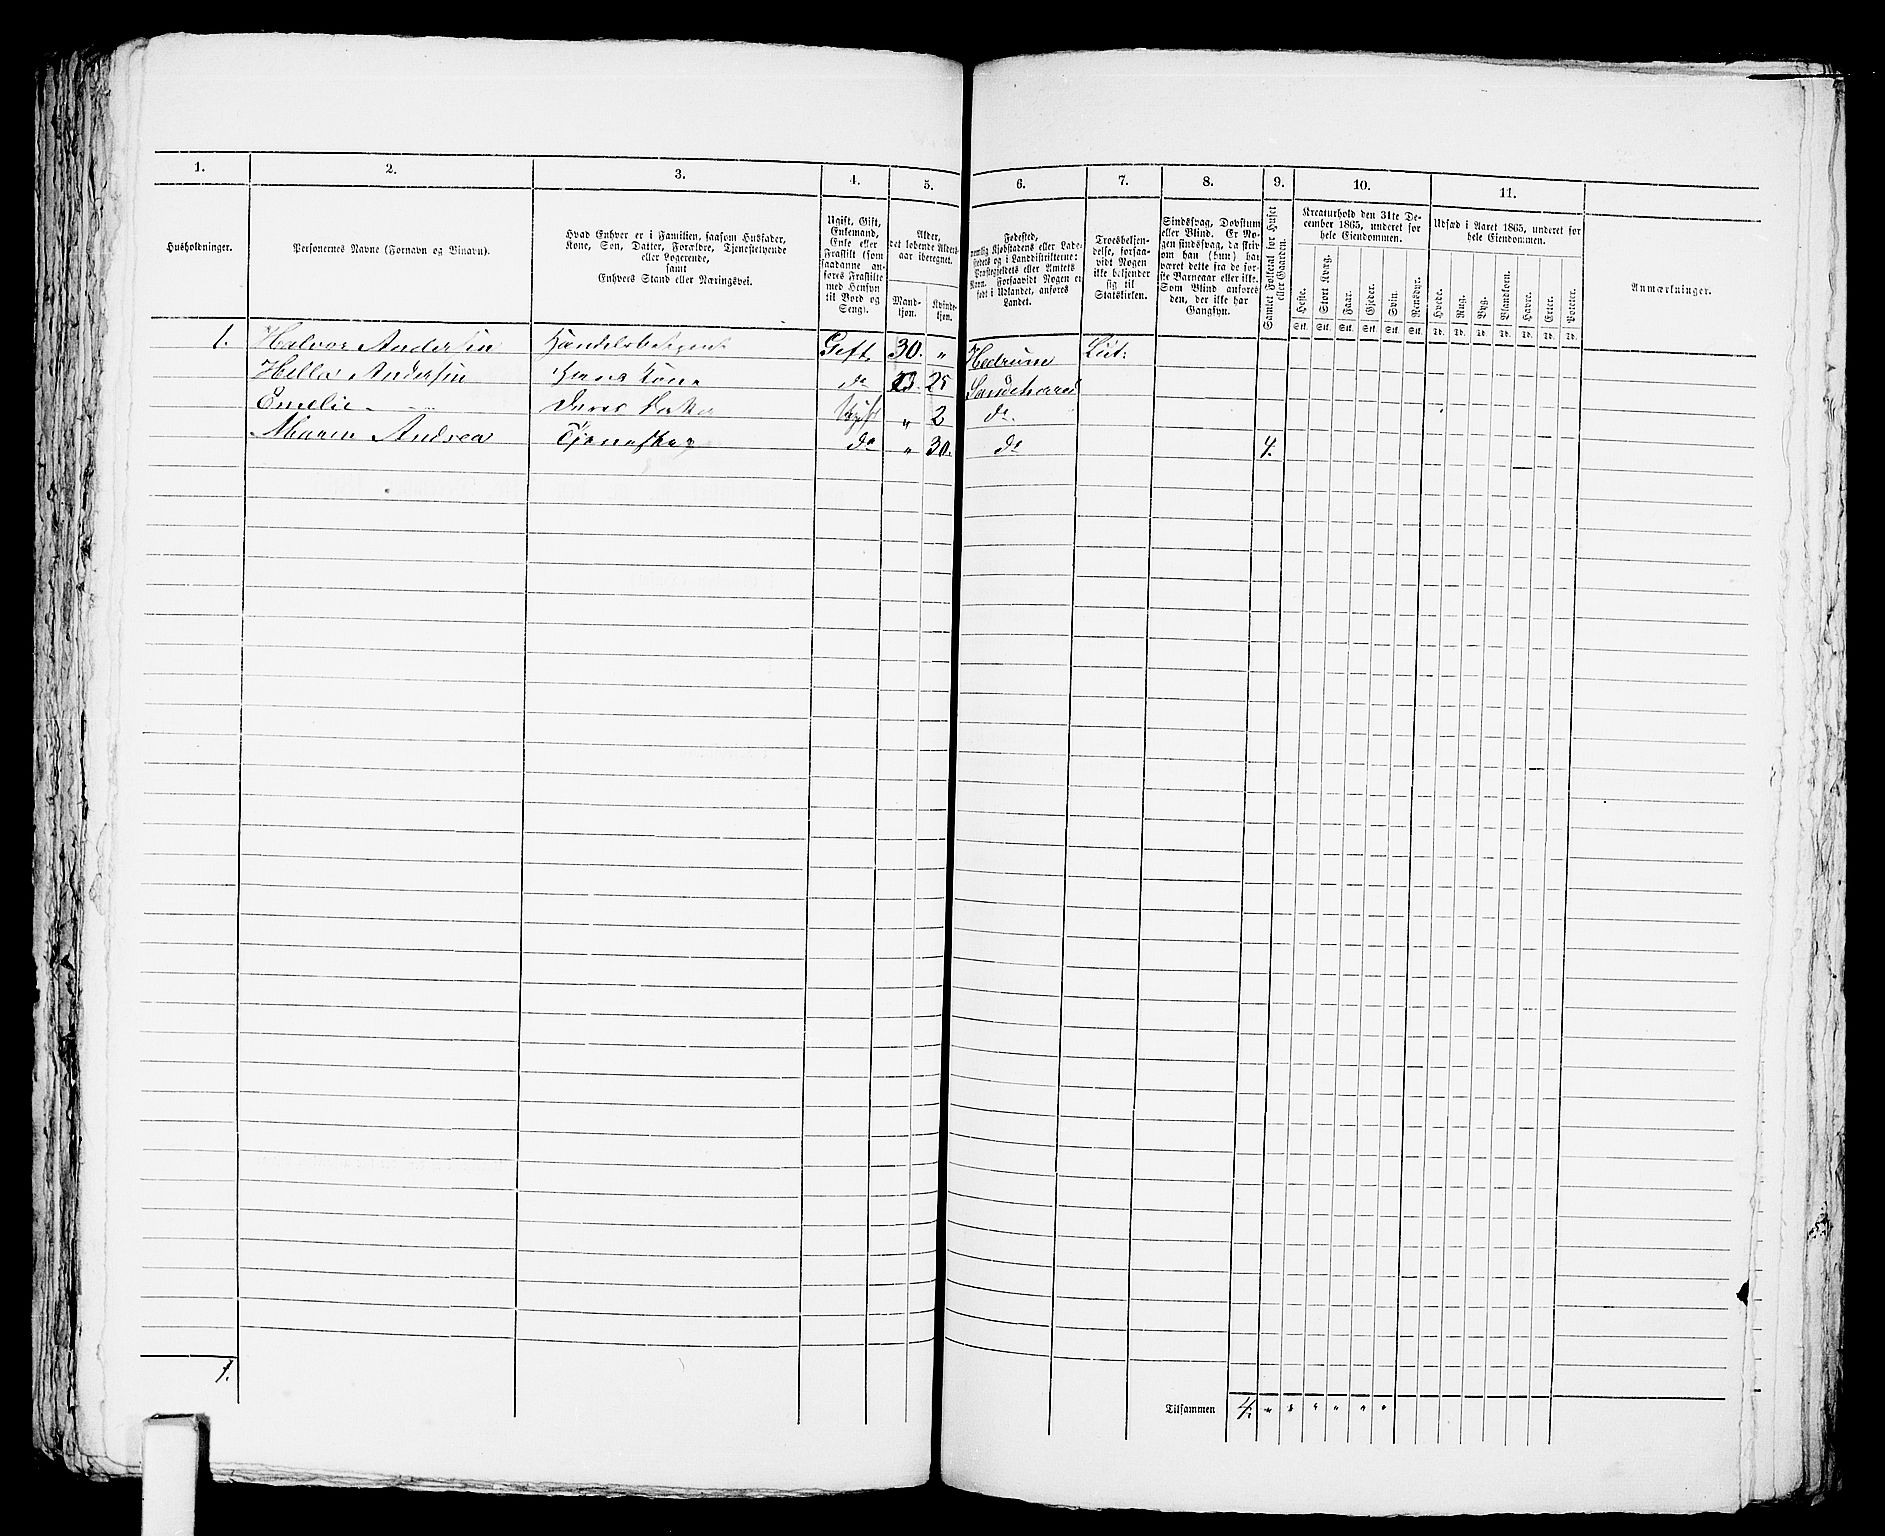 1. 2. 3. 4. 5. 6. 7. 8. 9. 10. 11.
Husholdninger.
Personernes Navne (Fornavn og Binavn).
Hvad Enhver er i Familien, saasom Husfader,
Kone, Søn, Datter, Forældre, Tjenestetyende
eller Logerende,
samt
Enhvers Stand eller Næringsvei.
Ugift, Gift,
Enkemand,
Enke eller
Fraskilt (som
saadanne an-
føres Fraskilte
med Hensyn
til Bord og
Seng).
Alder,
det løbende Alders-
aar iberegnet.
Mand-
kjøn.
Kvinde-
kjøn.
Fødested,
nemlig Kjøbstadens eller Lade-
stedets og i Landdistrikterne:
Præstegjeldets eller Amtets
Navn. Forsaavidt Nogen er
født i Udlandet, anføres
Landet.
Troesbekjen-
delse, forsaa-
vidt Nogen
ikke bekjender
sig til
Statskirken.
Sindssvag, Døvstum
eller Blind. Er No-
gen sindssvag, da skriv
om han (hun) har
været dette fra de før-
ste Barneaar eller ikke.
Som Blind anføres
den, der ikke har
Gangsyn.
Samlet Folketal for Huset
eller Gaarden.
Kreaturhold den 31te De-
cember 1865, underet for
hele Eiendommen.
Heste. Stort Kvæg. Faar. Gjeder. Svin. Rensdyr.
Stk. Stk. Stk. Stk. Stk. Stk.
Udsæd i Aaret 1865, underet for
hele Eiendommen.
Hvede. Rug. Byg. Blandkorn. Havre. Erter. Poteter.
Td. Td. Td. Td. Td. Td. Td.
Anmærkninger.
1. Halvor Andersen Handelsbetjent Gift 30. " Hedrum Lut:
Hella Andersen Hans Kone do 25 Sandeherred
Emelie Deres Ugift " 2 do
Maren Andrea do " 30. do 4.
1.
Tilsammen 4. " " " " " "